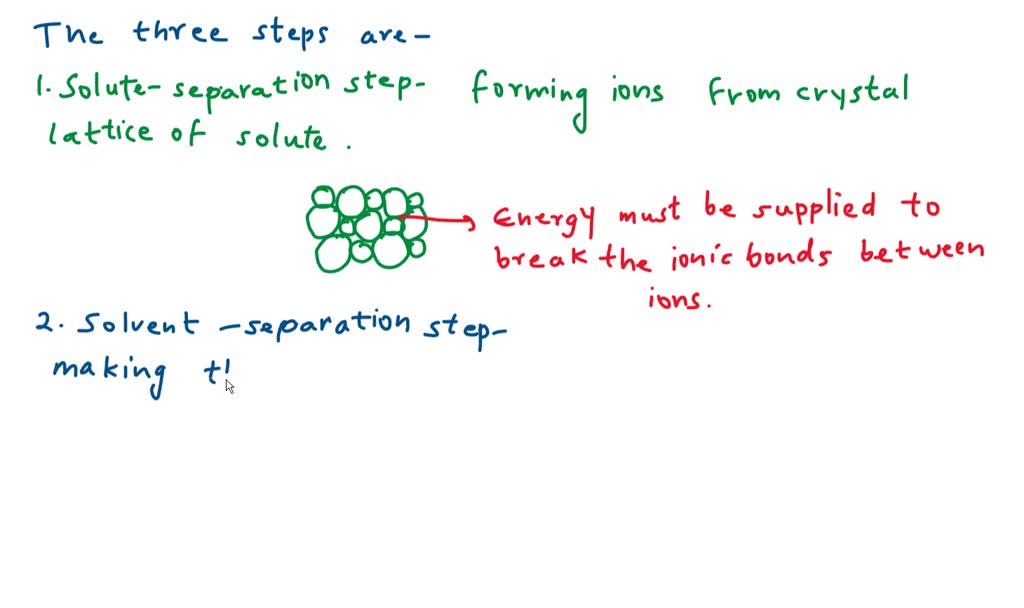 The three steps are-
1. Solute-separation step- forming ions from crystal
lattice of solute.
Energy must be supplied to
break the ionic bonds between
ions.
2. Solvent -separation step-
making